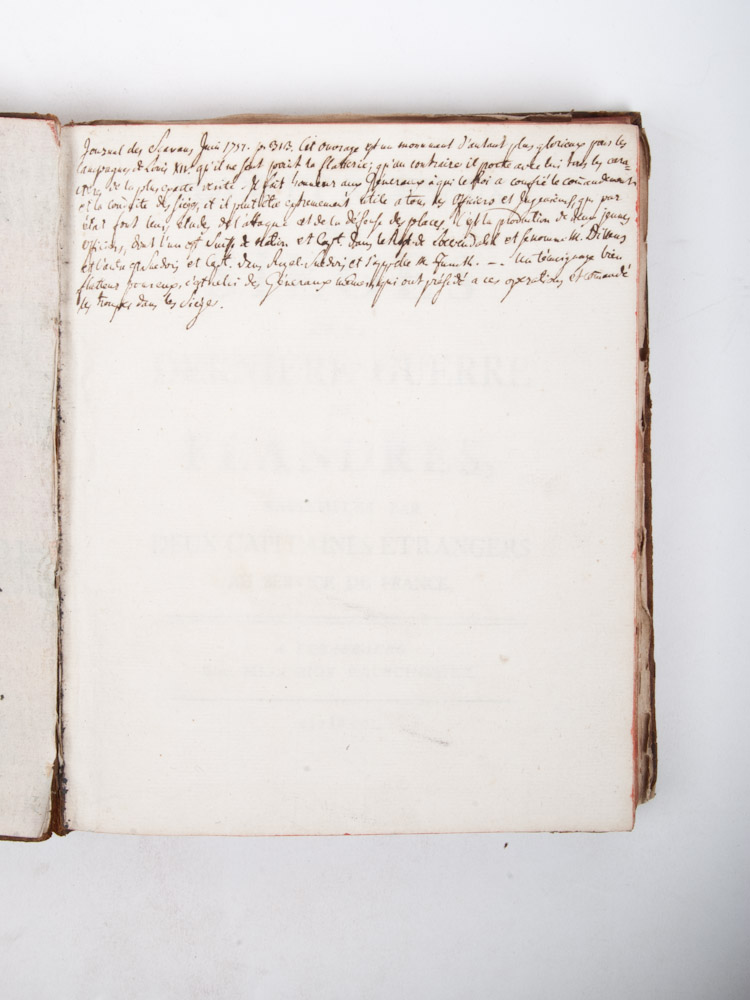 Journal des Scavans Juin 1757. p. 313. Cet ouvrage est un monument d'autant plus glorieux pour les
campagnes de Louis XV. qu'il ne sent point la flatterie; qu'au contraire il porte avec lui tous les cara-
cteres de la plus exacte verité. Il fait honneur aux Généraux à qui le Roi a confié le com̃andement
et la conduite des sieges, et il peut etre extremement utile a tous les officiers et Ingenieurs, qui par
état font leur étude de l'attaque et de la défense des places. C'est la production de deux jeunes
officiers, dont l'un est Suisse de Nation et Capt. dans le Regt. de et se nomme M.
et l'autre est Suedois et Capt. dans Royal-Suedois et s'appelle M. - - Un témoignage bien
flatteur pour eux, c'est celui des Généraux memes, qui ont présidé a ces operations et com̃andé
les troupes dans les sieges.
DERNIERE GUERRE
FLANDRES,
DEUX CAPITAINES ETRANGERS
AU SERVICE DE FRANCE